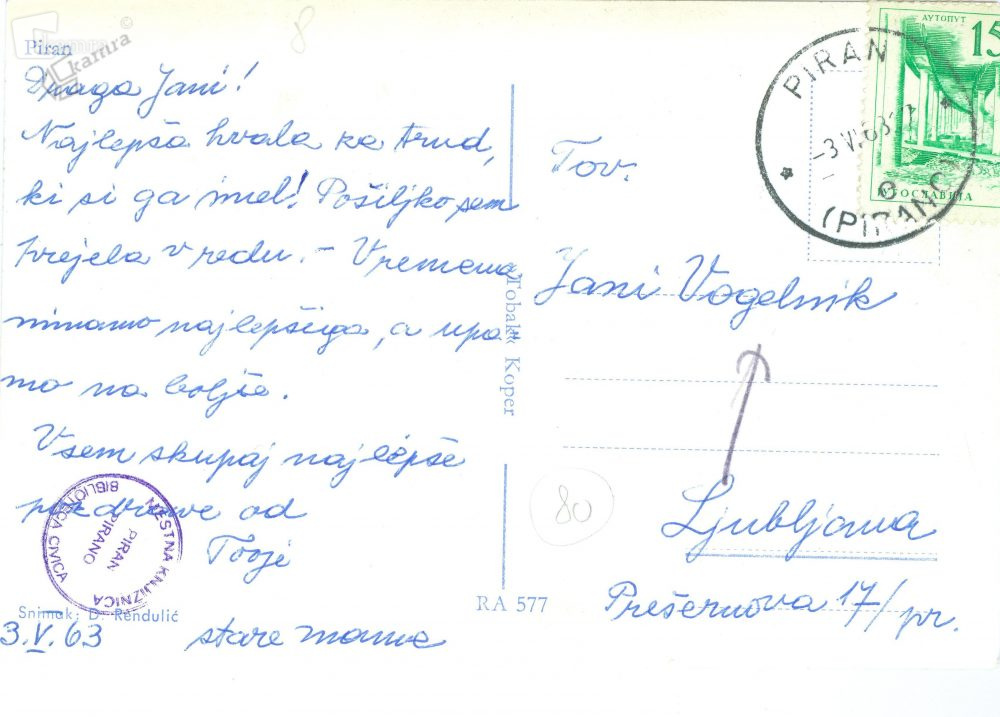 Piran
kamra
8
Draga Jani!
Najlepša hvala za trud,
ki si ga imel! Pošiljko sem
prejela v redu. – Vremena
nimamo najlepšega, a upa-
mo na boljše.
Vsem skupaj najlepše
pozdrave od
Tvoje
stare mame
3.V.63
Snimak: D. Rendulić
MESTNA KNJIŽNICA
PIRAN
PIRANO
BIBLIOTECA CIVICA
„Tobak“ Koper
RA 577
АУТОПУТ
15
ЈУГОСЛАВИЈА
PIRAN
-3.V.63
(PIRANO)
Tov.
Jani Vogelnik
80
Ljubljana
Prešernova 17/pr.